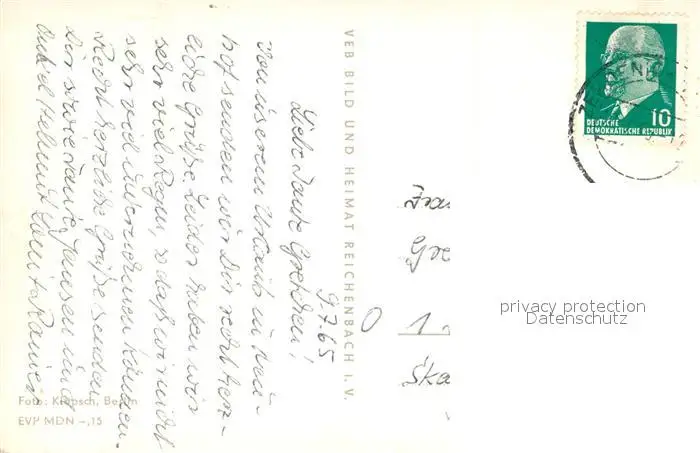 9.7.65
Liebe Tante Gretchen!
Von unserem Urlaub in Neu-
hof senden wir Dir recht herz-
liche Grüße. Leider haben wir
sehr viel Regen, so daß wir nicht
sehr viel unternehmen können.
Recht herzliche Grüße senden
Dir sowie Tante Jensen und
Onkel Helmut
VEB BILD UND HEIMAT REICHENBACH I. V.
Foto: Klopsch, Berlin
EVP MDN -,15
10
DEUTSCHE
DEMOKRATISCHE REPUBLIK
Fra
Gre
0
1
Ska
privacy protection
Datenschutz